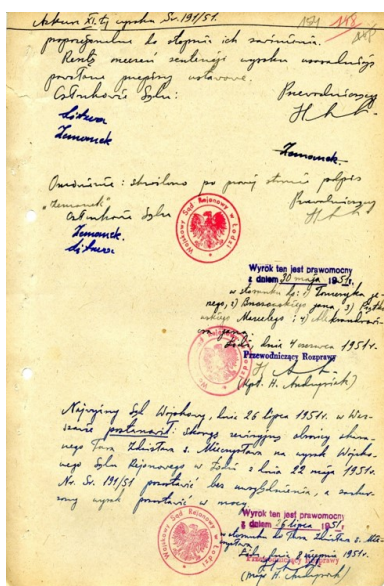 Arkusz XI. tej wyroku Sr. 191/51.
171 148
proporcjonalna do stopnia ich zawinienia.
Resztę meczeń sentencji wyroku uzasadniają
powołane przepisy ustawowe.
Członkowie Sądu: Przewodniczący
Litwa
Zemanek
Zemanek
Omówienie: skreślono po prawej stronie podpis
"Zemanek" Przewodniczący
Członkowie Sądu
Zemanek.
Wojskowy Sąd Rejonowy w Łodzi
Wyrok ten jest prawomocny
z dniem 30 maja 1951.
w stosunku do: 1) Tomczyka
nego, 2) Jana, 3)
Marcelego i 4)
Jana.
Łódź, dnia 4 czerwca 1951 r.
Przewodniczący Rozprawy
(kpt. H. Andrysiak)
Wojskowy Sąd Rejonowy w Łodzi
Najwyższy Sąd Wojskowy, dnia 26 lipca 1951 r. w War-
szawie postanowił: skargę rewizyjną obrońcy oskarżo-
nego s. Mieczysława na wyrok Wojsko-
wego Sądu Rejonowego w Łodzi z dnia 22 maja 1951 r.
Nr. Sr. 191/51 pozostawić bez uwzględnienia, a zaskar-
żony wyrok pozostawić w mocy.
Wyrok ten jest prawomocny
z dniem 26 lipca 1951.
w stosunku do
Przewodniczący Rozprawy
(mjr. H. Andrysiak)
Wojskowy Sąd Rejonowy w Łodzi